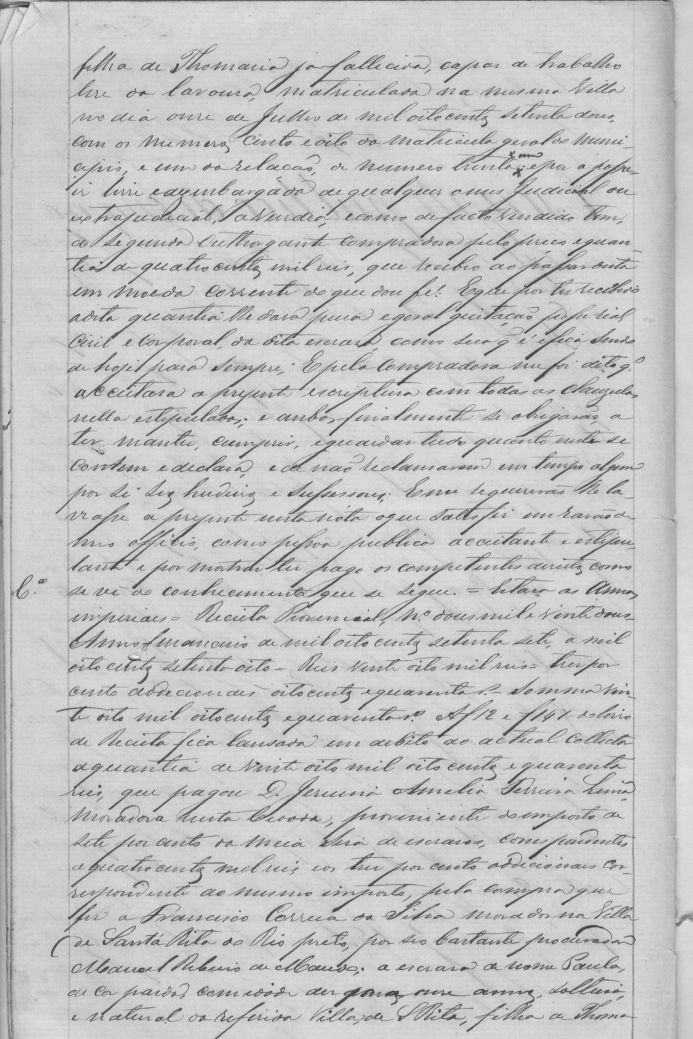 filha de Thomazia ja fallecida, capaz de trabalho
livre da lavoura, matriculada na mesma Villa
no dia onze de Julho de mil oito centos setenta dous,
com os numeros, cento e oito da matricula geral do muni-
cipio, e um da relação, de numero trinta e um e por a possu-
ir livre e dezembargada de qualquer onus judicial ou
extrajudicial, a vendia, e como de facto vendido tem,
a segunda outhorgante compradora pelo preço e quan-
tia de quatro centos mil reis, que recebeo ao passar desta
em moeda corrente do que dou fé! E que por ter recebido
a dita quantia lhe dava pura e geral quitação, posse real
Civil e corporal, da dita escrava como sua q' é e fica sendo
de hoje para sempre; E pela compradora me foi dito q.
acceitava a prezente escriptura com todas as clauzulas
nella estipuladas; e ambos finalmente se obrigarão, a
ter, manter, cumprir, e guardar tudo quanto nesta se
contem e declara, e de não reclamarem em tempo algum
por si seus herdeiros e sussessores: E me requererão lhe la-
vrasse a prezente nesta nóta o que satisfei em razão de
meu officio, como pessoa publica acceitante e estipu-
lante e por mostrar ter pago os competentes direitos como
se vê do conhecimento que se segue. = Estavão as Armas
C.ª
imperiaes = Receita Provincial, N.º dous mil e vinte dous
Anno financeiro de mil oito centos setenta sete, a mil
oito centos setenta oito = Reis vinte oito mil reis = tres por
cento addicionaes oito centos e quarenta rs. = Somma vin-
te oito mil oito centos e quarenta rs. Af 12 e f 147 do livro
de Receita fica lansada em debito ao actual Collector
a quantia de vinte oito mil oito centos e quarenta
reis, que pagou D. Amelia Ferreira Lima
moradora nesta Cidade, proveniente do imposto de
sete por cento da meia siza de escravos, correspondentes
a quatro centos mil reis e os tres por cento addicionaes cor-
respondente ao mesmo imposto, pela compra que
fez a Francisco Correia da Silva morador na Villa
de Santa Rita do Rio preto, por seo bastante procurador
Manoel Ribeiro de a escrava de nome Paula,
de cor parda, com idade de onze annos, solteira,
e natural da referida Villa, de S Rita, filha de Thoma-